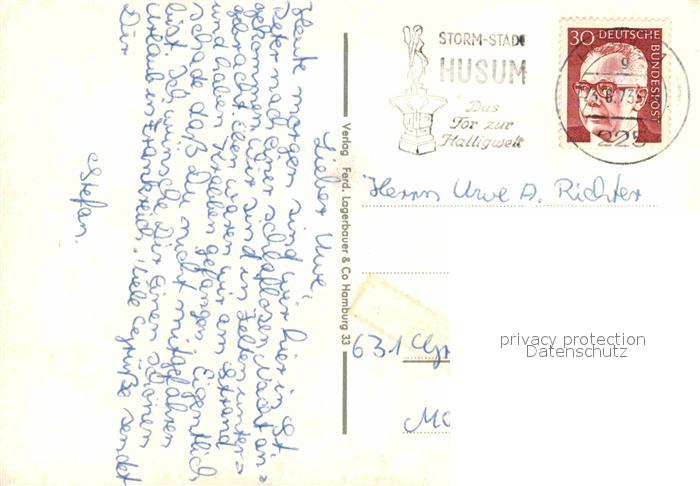 Lieber Uwe,
Heute morgen sind wir hier in St.
Peter nach einer schlaflosen Nacht an=
gekommen. Wir sind in Zelten unter=
gebracht. Eben waren wir am Strand
und haben Krabben gefangen. Eigentlich
schade, daß Du nicht mitgefahren
bist. Ich wünsche Dir einen schönen
Urlaub in Frankreich. Viele Grüße sendet
Dir
Stefan.
Verlag Ferd. Lagerbauer & Co Hamburg 33
STORM-STADT
HUSUM
Das
Tor zur
Halligwelt
30 DEUTSCHE
BUNDESPOST
g
73
225
Herrn Uwe A. Richter
631
privacy protection
Datenschutz